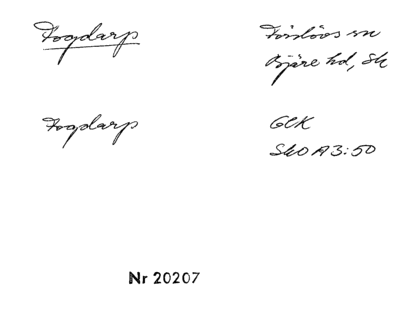 Fogdarp
Förslövs sn
Bjäre hd, Sk
Fogdarp
GCK
SkO A3:50
Nr 20207